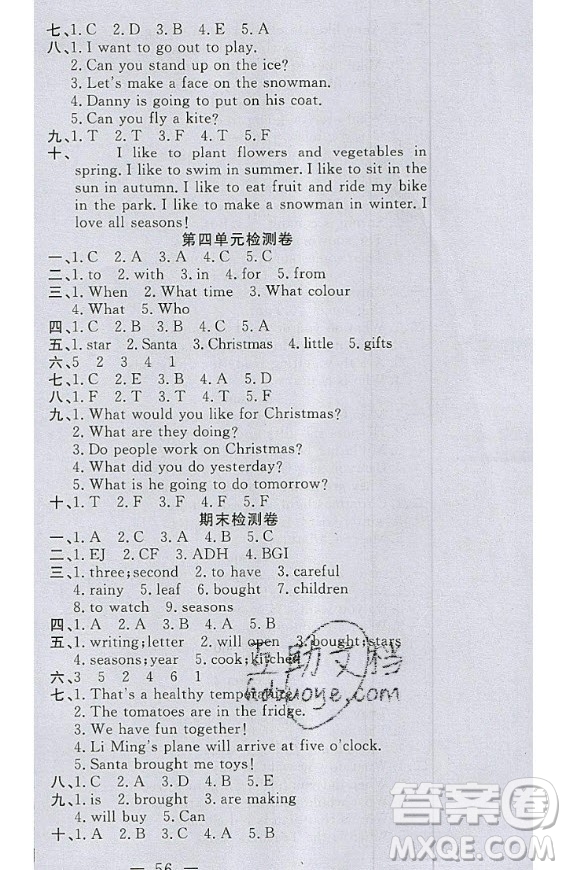 七、1. C 2. D 3. B 4. E 5. A
八、1. I want to go out to play.
2. Can you stand up on the ice?
3. Let's make a face on the snowman.
4. Danny is going to put on his coat.
5. Can you fly a kite?
九、1. T 2. T 3. F 4. T 5. F
十、 I like to plant flowers and vegetables in
spring. I like to swim in summer. I like to sit in the
sun in autumn. I like to eat fruit and ride my bike
in the park. I like to make a snowman in winter. I
love all seasons!
第四单元检测卷
一、1. C 2. A 3. A 4. C 5. C
二、1. to 2. with 3. in 4. for 5. from
三、1. When 2. What time 3. What colour
4. What 5. Who
四、1. C 2. B 3. B 4. C 5. A
五、1. star 2. Santa 3. Christmas 4. little 5. gifts
六、5 2 3 4 1
七、1. C 2. E 3. B 4. A 5. D
八、1. F 2. T 3. T 4. T 5. F
九、1. What would you like for Christmas?
2. What are they doing?
3. Do people work on Christmas?
4. What did you do yesterday?
5. What is he going to do tomorrow?
十、1. T 2. F 3. F 4. T 5. F
期末检测卷
一、1. A 2. C 3. A 4. A 5. B
二、1. EJ 2. CF 3. ADH 4. BGI
三、1. three;second 2. to have 3. careful
4. rainy 5. leaf 6. bought 7. children
8. to watch 9. seasons
四、1. A 2. A 3. B 4. A 5. B
五、1. writing;letter 2. will open 3. bought;stars
4. seasons;year 5. cook;kitchen
六、3 5 2 4 6 1
七、1. That's a healthy
2. The tomatoes are in the fridge.
3. We have fun together!
4. Li Ming's plane will arrive at five o'clock.
5. Santa brought me toys!
八、1. C 2. A 3. D 4. E 5. B
九、1. is 2. brought 3. are making
4. will buy 5. Can
十、1. A 2. B 3. B 4. A 5. B
— 56 —
互助文档
答案圈
MXQE.COM